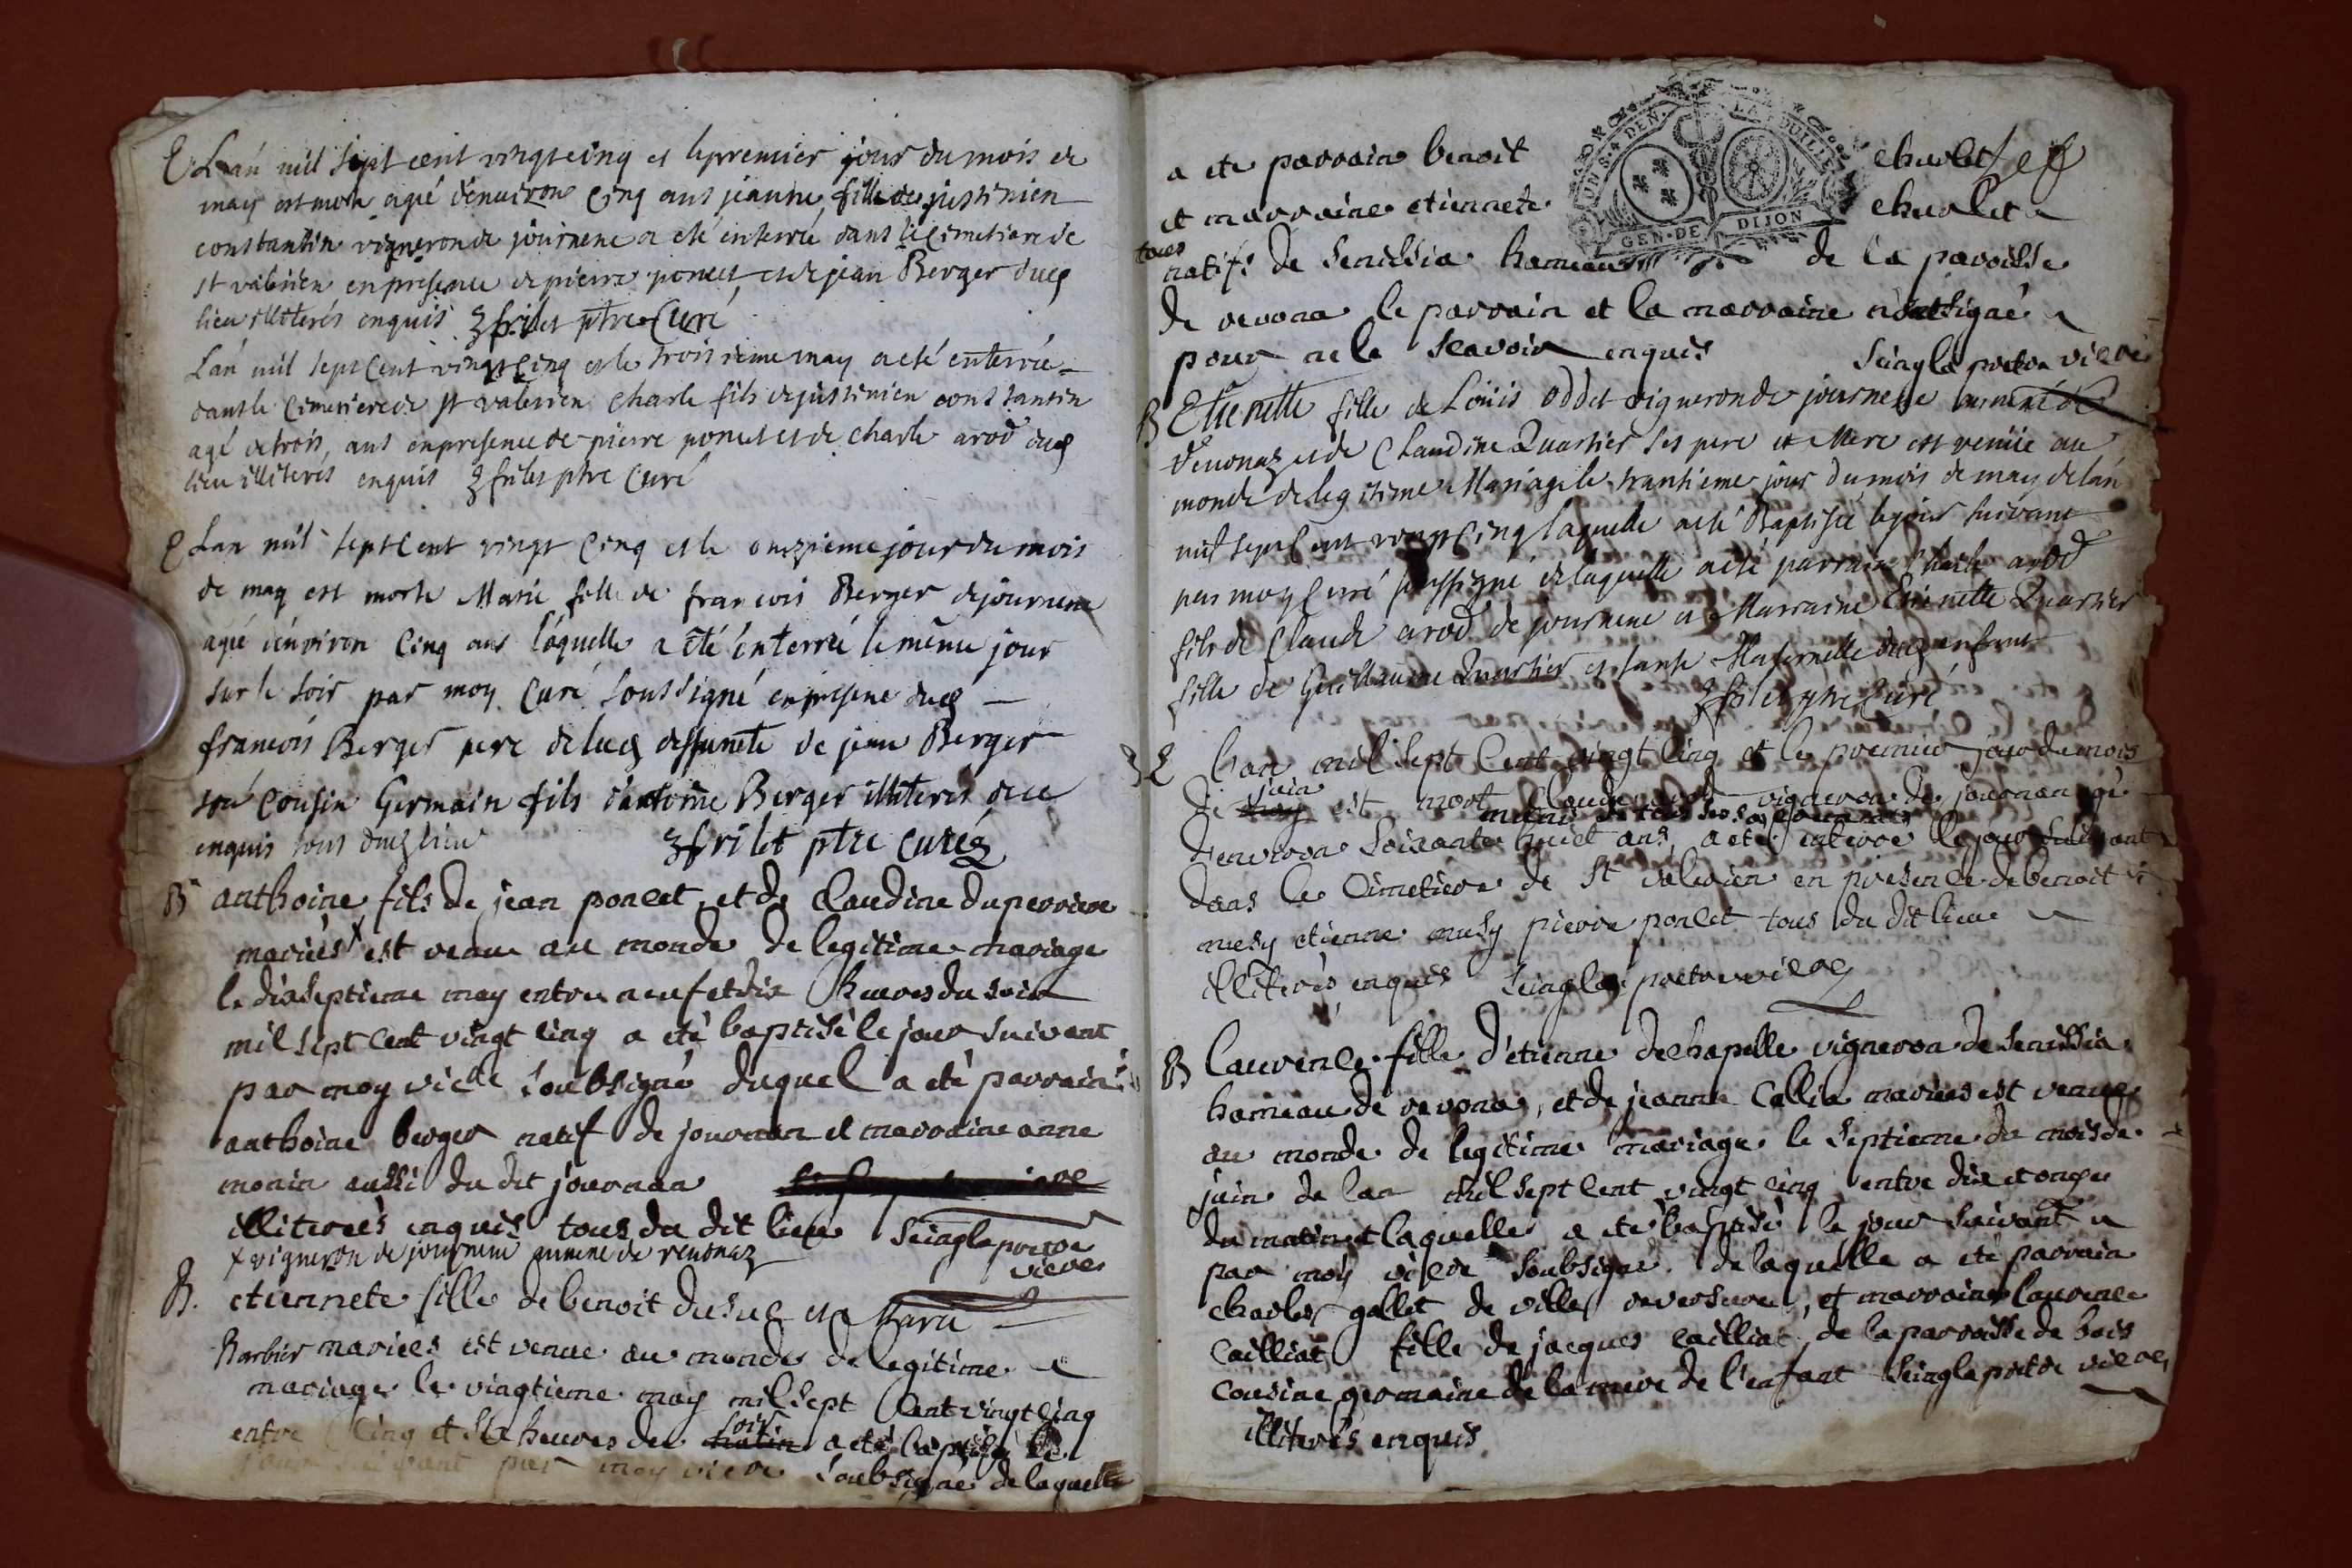 E Lan mil sept cent vingt cinq et le premier jour du mois de
may est morte agée d'environ cinq ans jeanne fille de justinien
constantin vigneron de journene a eté enterrée dans le cimetiere de
st valerien en presence de pierre poncet et de jean Berger dud
lieu illiterés enquis frilet ptre Curé
Lan mil sept cent vingt cinq et le troisieme may a eté enterrée
dans le cimetiere de st valerien charle fils de justinien constantin
agé de trois ans en presence de pierre poncet et de charle arod dud
lieu illiteres enquis frilet ptre curé
E Lan mil sept cent vingt cinq et le onzieme jour du mois
de may est morte Marie fille de francois Berger de journene
agée d'environ cinq ans laquelle a été enterrée le même jour
sur le soir par moy Curé soussigné en presence dud
francois Berger pere de lad deffuncte de jean Berger
son cousin Germain fils d'antoine Berger illiteres de ce
enquis tous dud lieu frilet ptre curé
B anthoine fils de jean poncet et de claudine duperriere
mariés x est venu au monde de legitime mariage
le dixseptieme may entre neuf et dix heures du soir
mil sept cent vingt cinq a eté baptisé le jour suivant
par moy vicre soubsigné duquel a eté parrain
anthoine berger natif de journan et marraine anne
monin aussi du dit journan
illiterés enquis tous du dit lieu Seingla pretre
vicre
x vigneron de journene annexe de revonaz
B. etiennete fille de benoit dusuc et de Marie
Barbier mariees est venue au monde de legitime
mariage le vingtieme may mil sept cent vingt cinq
entre cinq et six heures du soir a eté baptisé le
jour suivant par moy vicre soubsigné de laquelle
a ete parrain benoit chevolet
et marraine etiennete chevolet
tous
natifs de senissia hameau de la paroisse
de revona le parrain et la marraine n'ont signé
pour ne le scavoir enquis Seingla pretre vicre
GEN · DE DIJON
B Etiennette fille de Loüis oddet vigneron de journene annexe de
Revonaz et de Claudine Quartier ses pere et Mere est venüe au
monde de legitime Mariage le trantieme jour du mois de may de lan
mil sept cent vingt cinq laquelle a eté Baptisée le jour suivant
par moy curé soussigné de laquelle a eté parrain charle arod
fils de Claude arod de journene et Marraine Etiennette Quartier
fille de Guillaume Quartier et tante Maternelle dud enfant
frilet ptre Curé
E Lan mil sept cent vingt cinq et le premier jour du mois
de juin est mort Claude arod vigneron de journan agé
munis de tous ses sacremens
d'environ soixante huict ans, a eté enterré le jour suivant
dans le cimetiere de St valerien en presence de benoit
musy etienne musy pierre poncet tous du dit lieu
illiterés enquis Seingla pretre vicre
B laurence fille d'etienne dechapelle vigneron de senissia
hameau de revona, et de jeanne Callia mariees est venue
au monde de legitime mariage le septieme du mois de
juin de lan mil sept cent vingt cinq entre dix et onze
du matin et laquelle a eté baptisé le jour suivant
par moy vicre soubsigné de laquelle a eté parrain
charles gallet de ville reversure, et marraine laurence
cailliat fille de jacques cailliat de la parroisse de bois
cousine germaine de la mere de l'enfant Seingla pretre vicre
illiterés enquis